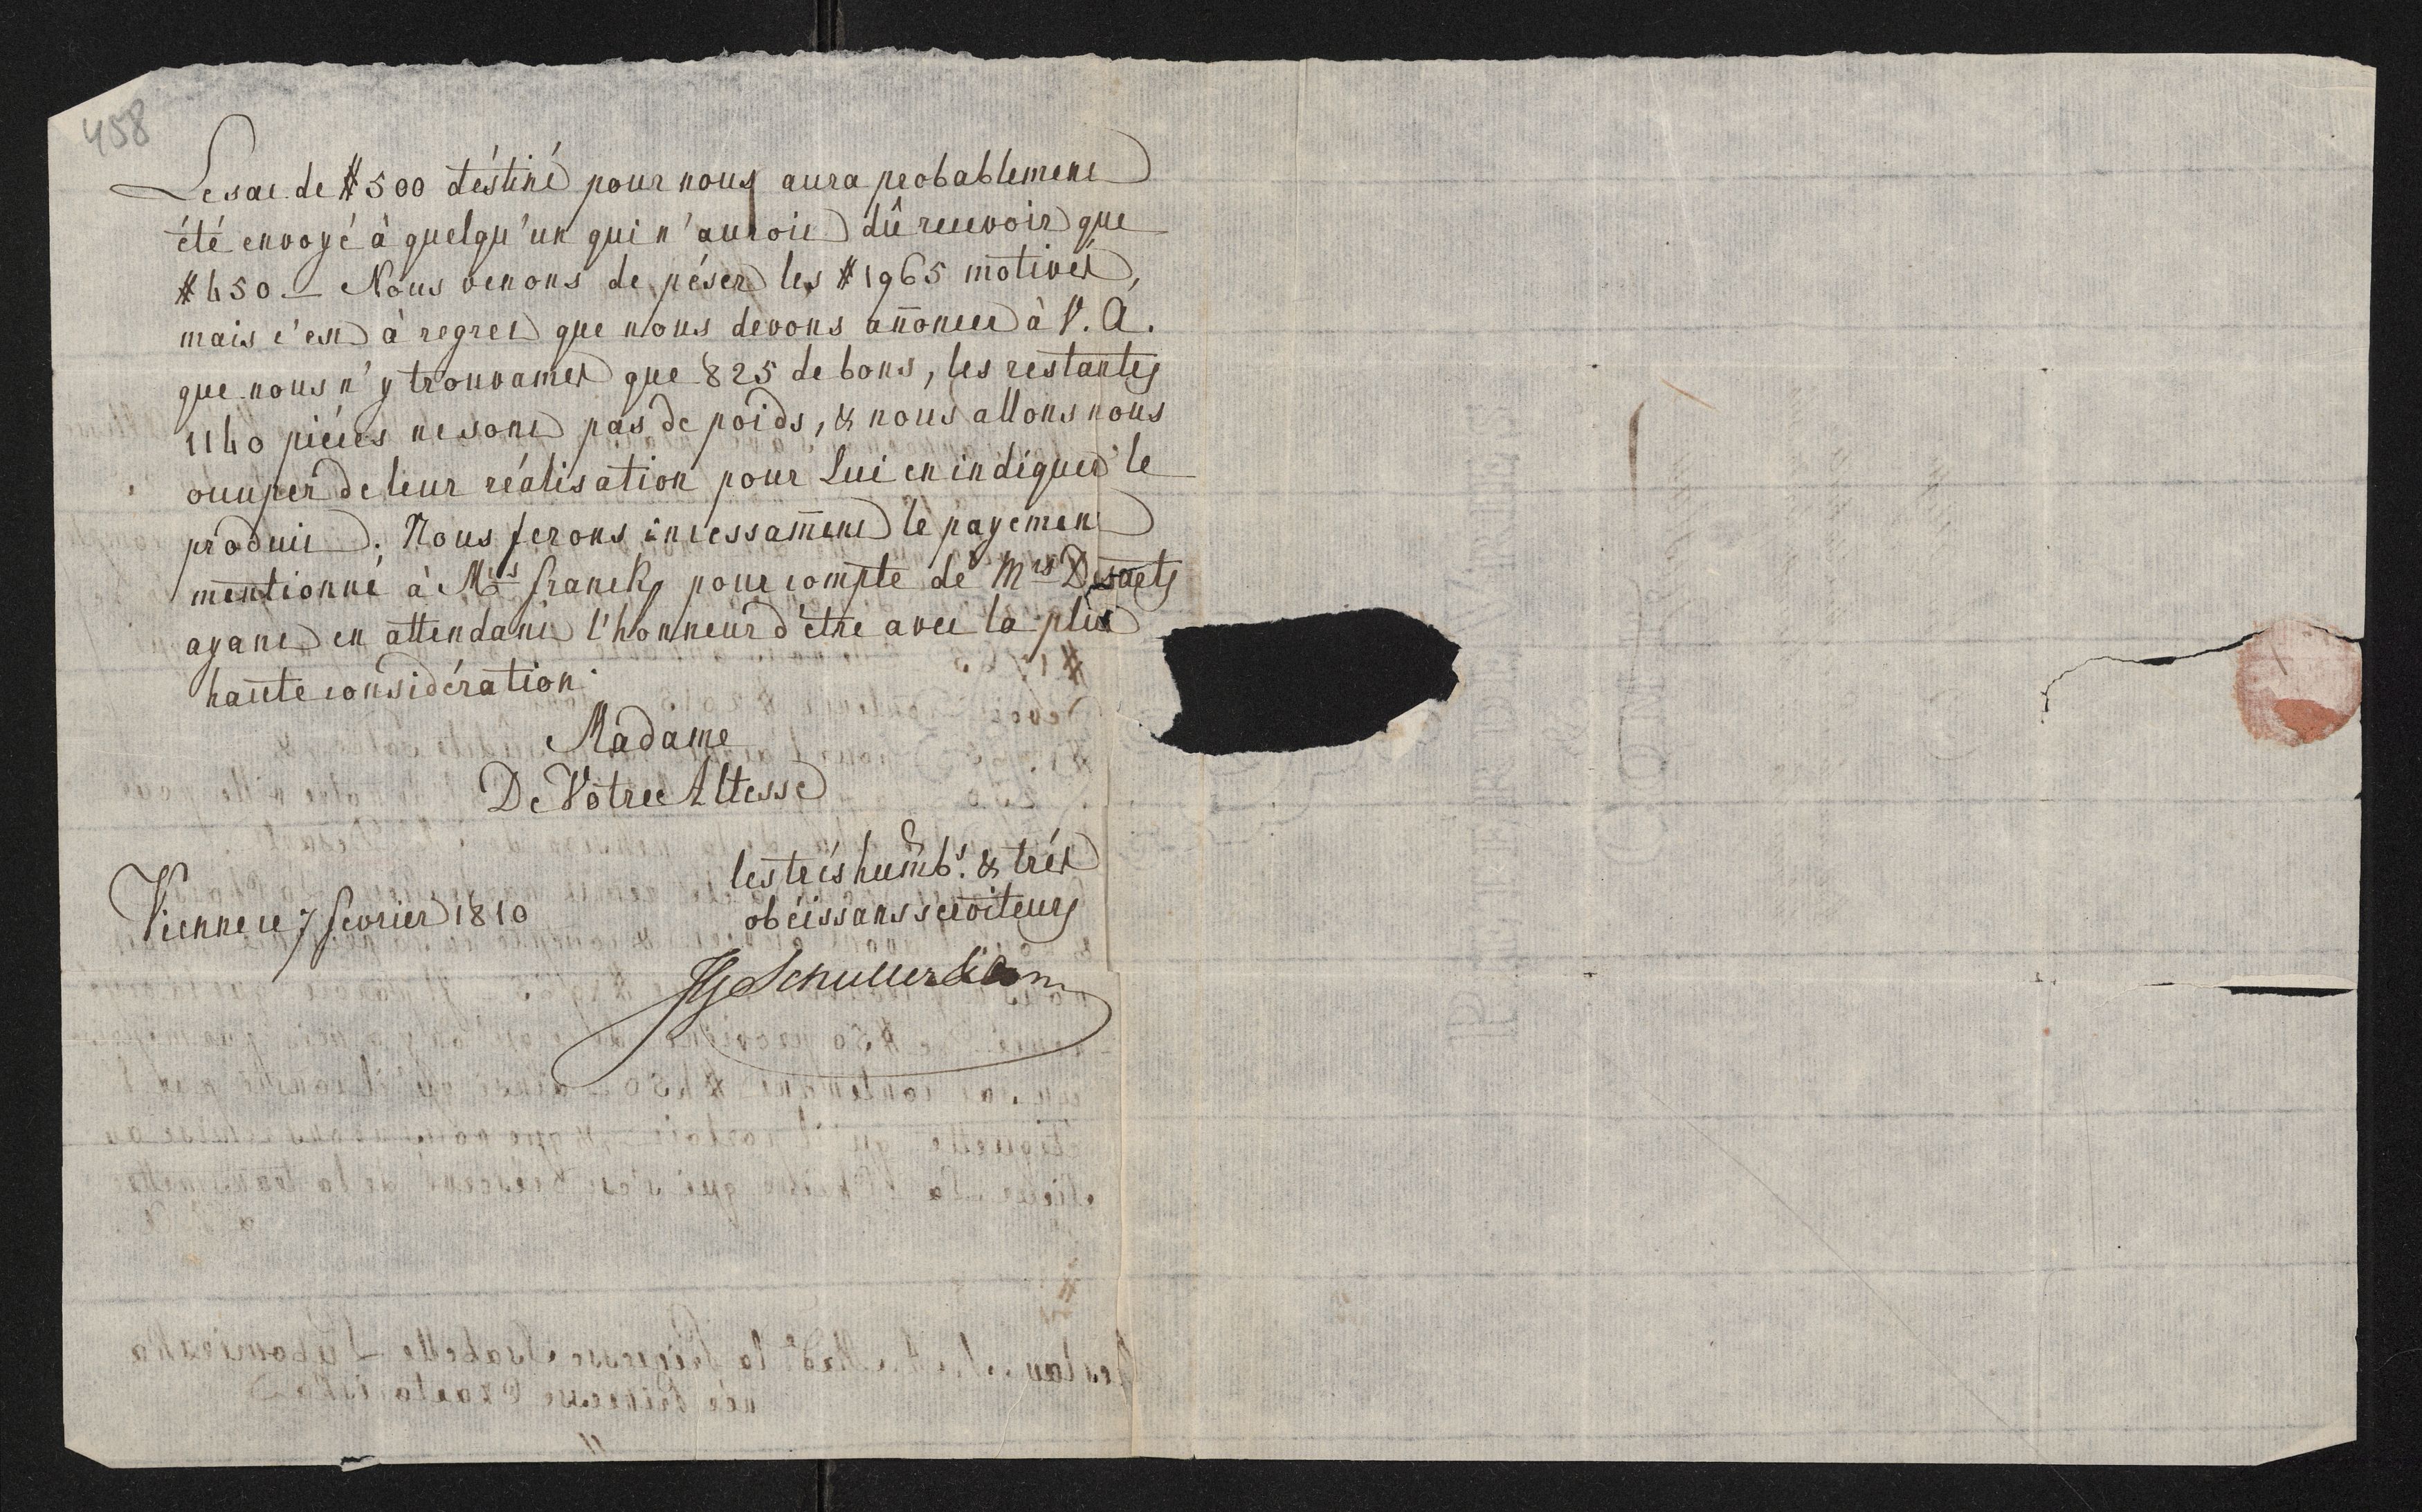 458
Le sac de # 500 déstiné pour nous aura probablement
été envoyé à quelqu'un qui n'auroit dû recevoir que
# 450 — Nous venons de péser les # 1965 motivés,
mais c'est à regret que nous devons añoncer à V. A.
que nous n'y trouvames que 825 de bons, les restantes
1140 piéces ne sont pas de poids, & nous allons nous
occuper de leur réalisation pour Lui en indiquer le
produit. Nous ferons incessam̄ent le payement
mentionné à Mrs franck pour compte de Mrs Desaets
ayant en attendant l'honneur d'être avec la plus
haute considération.
Madame
De Vôtre Altesse
les trés humbs. & trés
obéissans serviteurs
Vienne ce 7 fevrier 1810
JG Schuller & Com